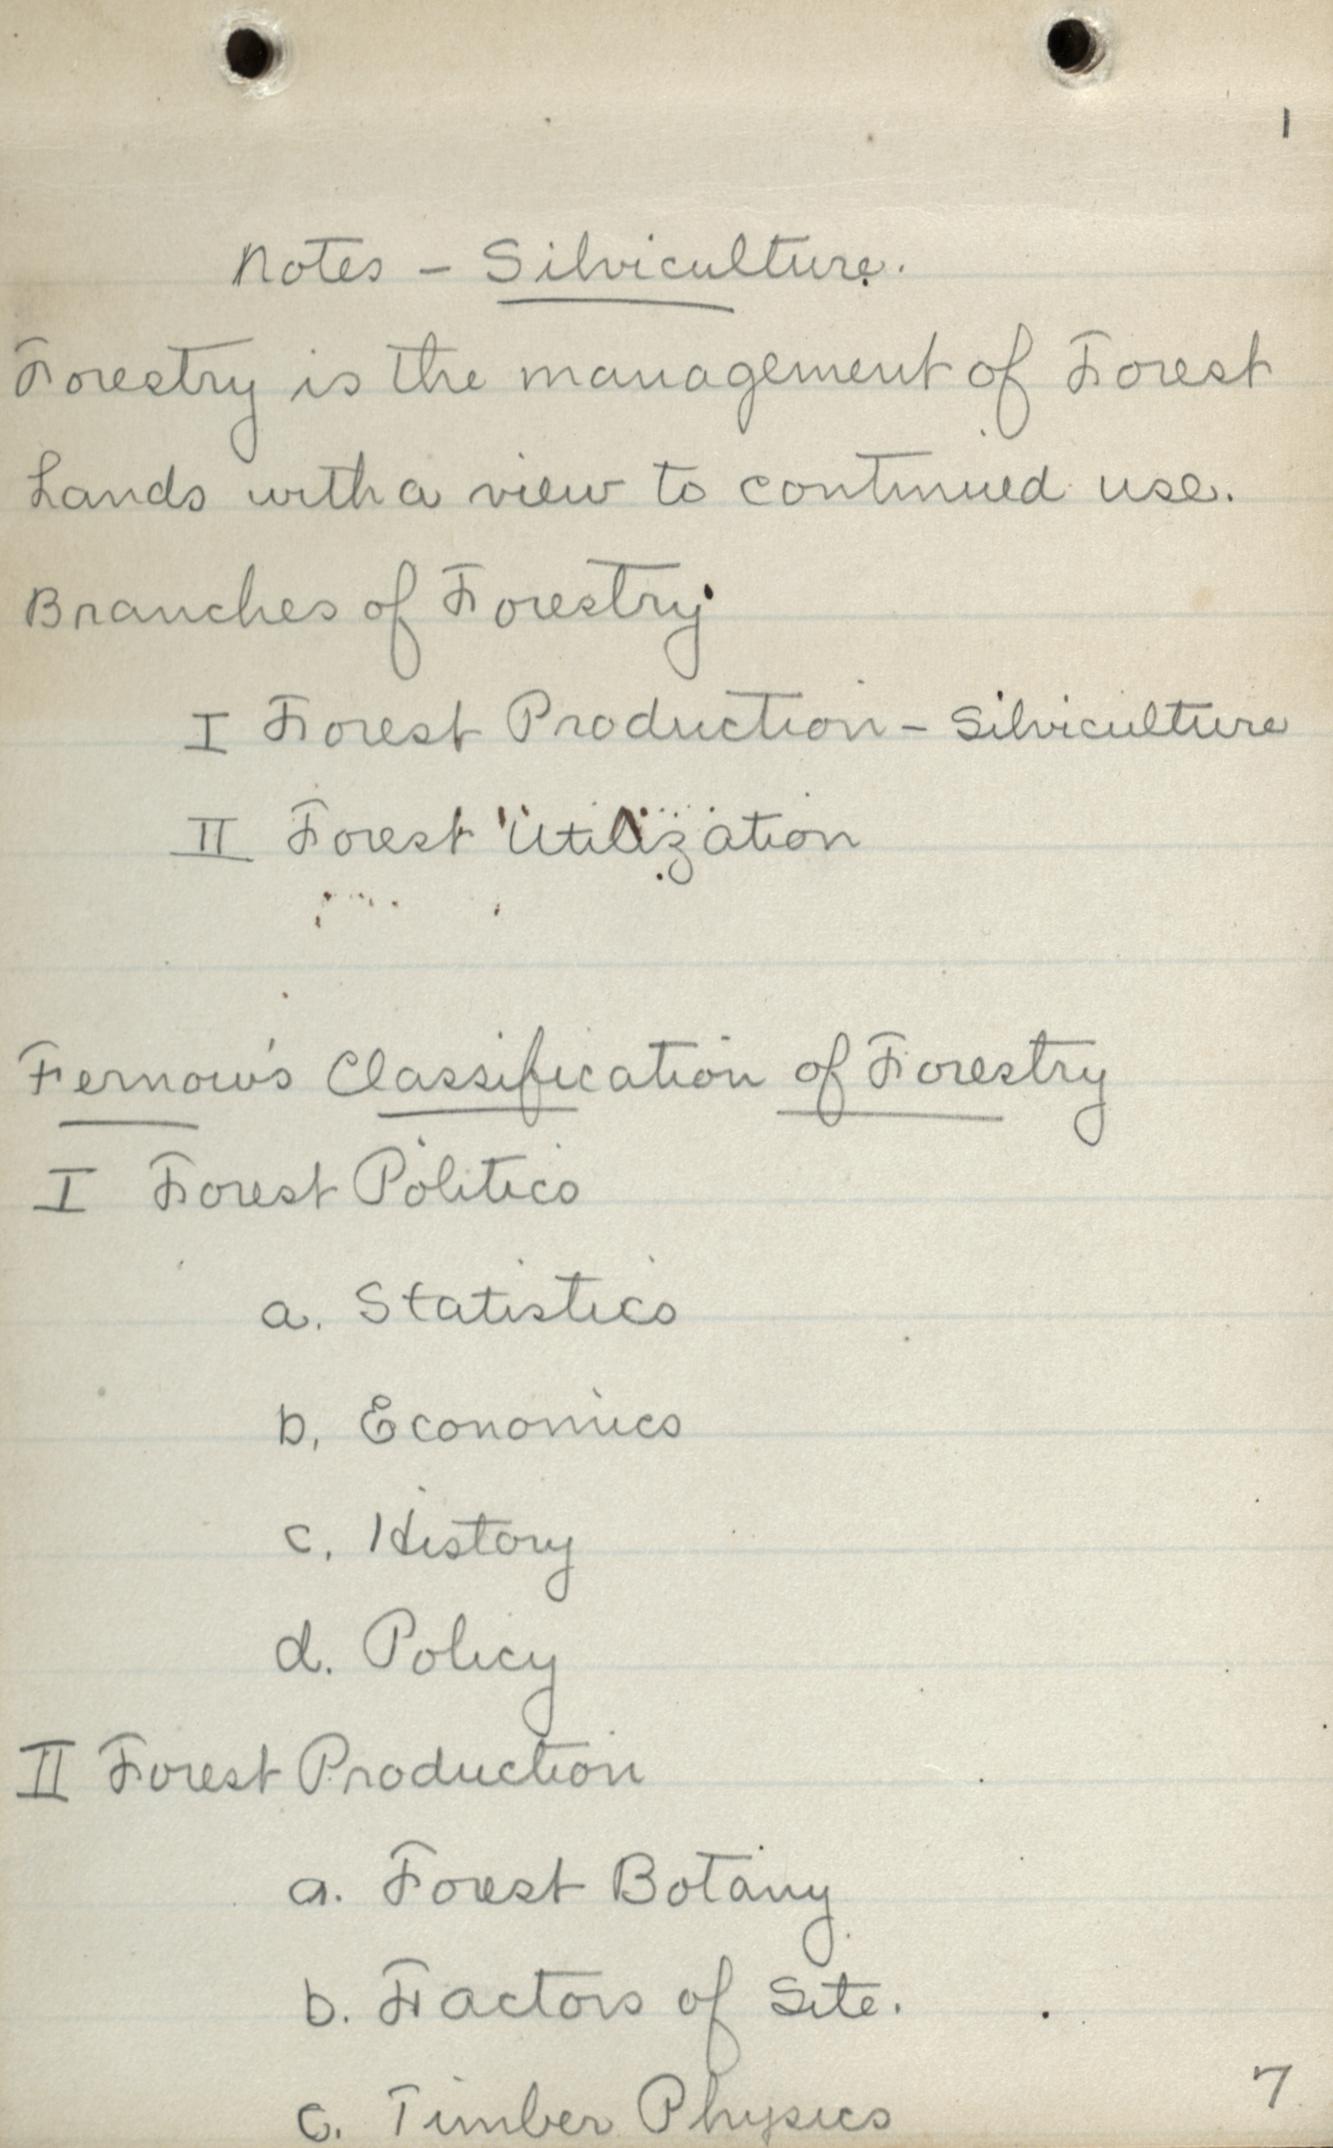 1
Notes - Silviculture.
Forestry is the management of Forest
Lands with a view to continued use.
Branches of Forestry
I Forest Production - Silviculture
II Forest Utilization
Fernow's Classification of Forestry
I Forest Politics
a. Statistics
b. Economics
c. History
d. Policy
II Forest Production
a. Forest Botany
b. Factors of Site.
c. Timber Physics
7